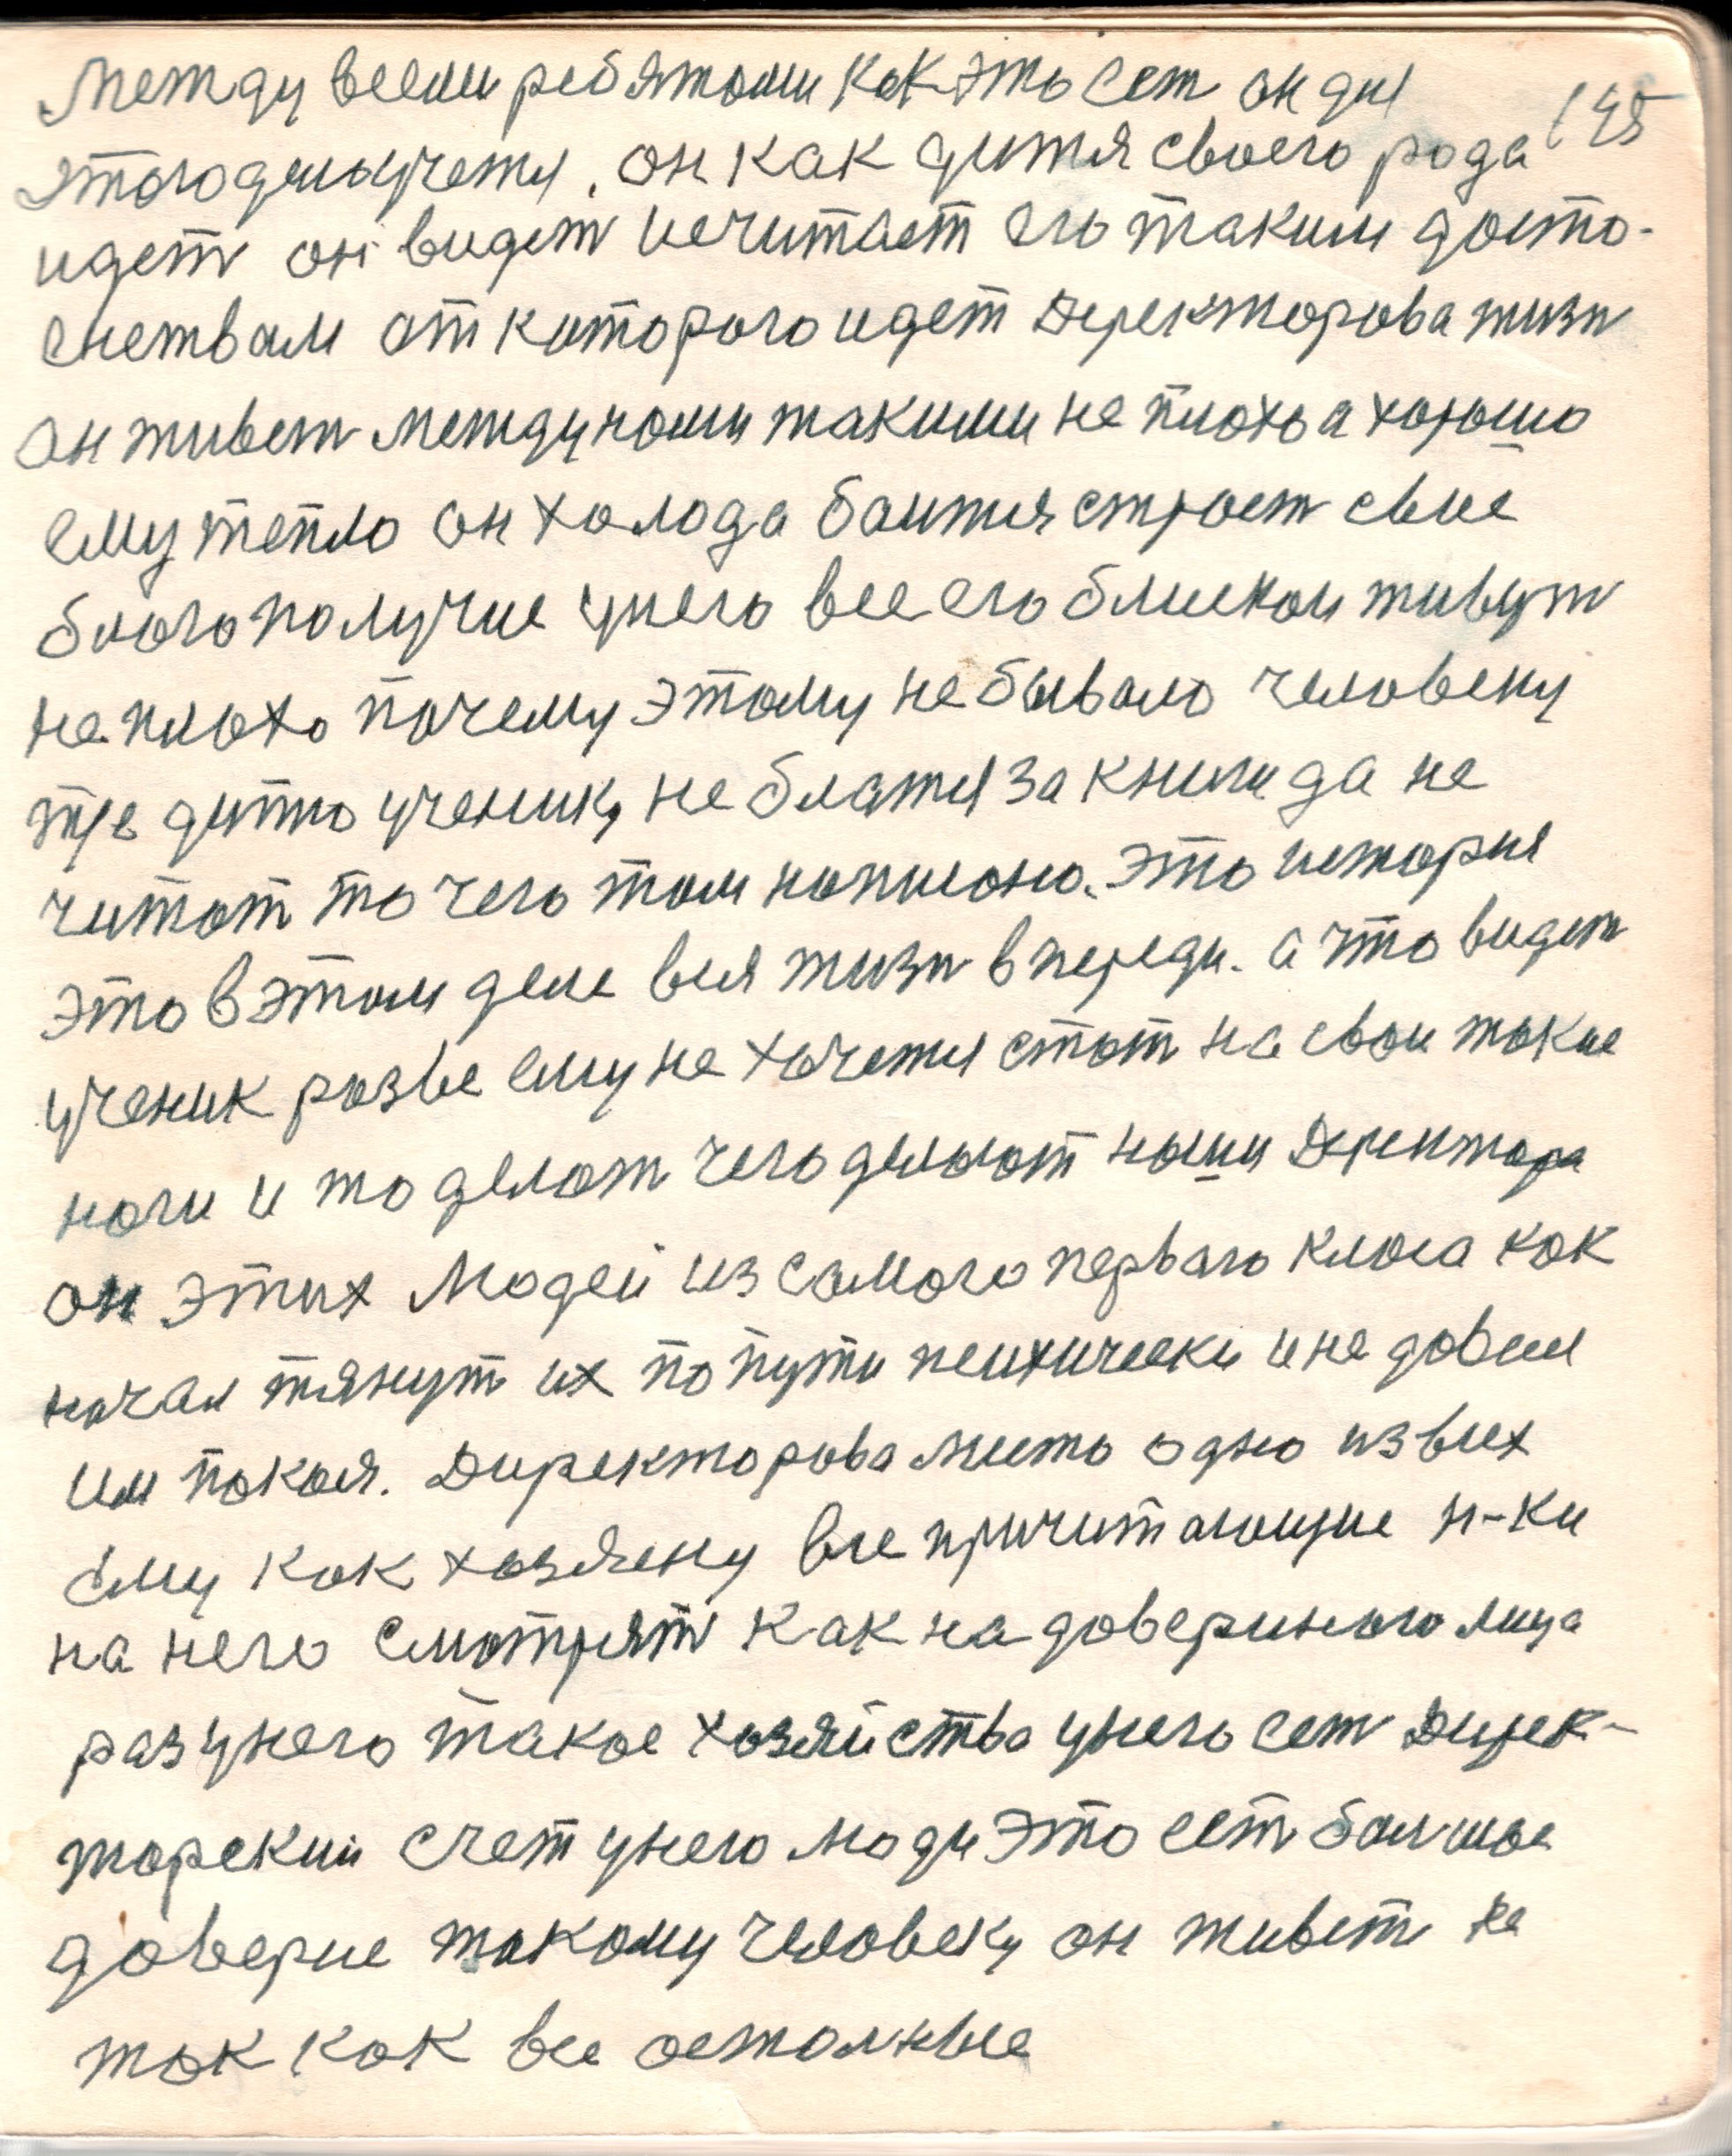 между всеми ребятоми как это сет он дл
145
этого делы учется. он как дитя своего рода
идет он видет исчитает его таким досто-
енством от которого идет Деректорова жизн
он живет между нами такими не плохо а хорошо
ему тепло он холода боится строет свое
благополучие унего все его блиской живут
не плохо почему этому небывало человеку
тре дитно ученику не блатся за книги да не
читат то чего там нописоно. Это история
это вэтом деле вся жизн впереди. а что видет
ученик розве ему не хочется стат на свои токие
ноги и то делат чего делоют ноши Деректора
он этих людей из самого первого клоса как
начал тянут их попути психически ине довал
им покоя. Директорова место одно извсех
ему как хозяену все причитающие н-ки
на него смотрят как на довериного лица
раз унего такое хозяйства унего сет Дирек-
торский счет унего люди Это сет болшое
доверие такому человеку он живет не
так как все остолные